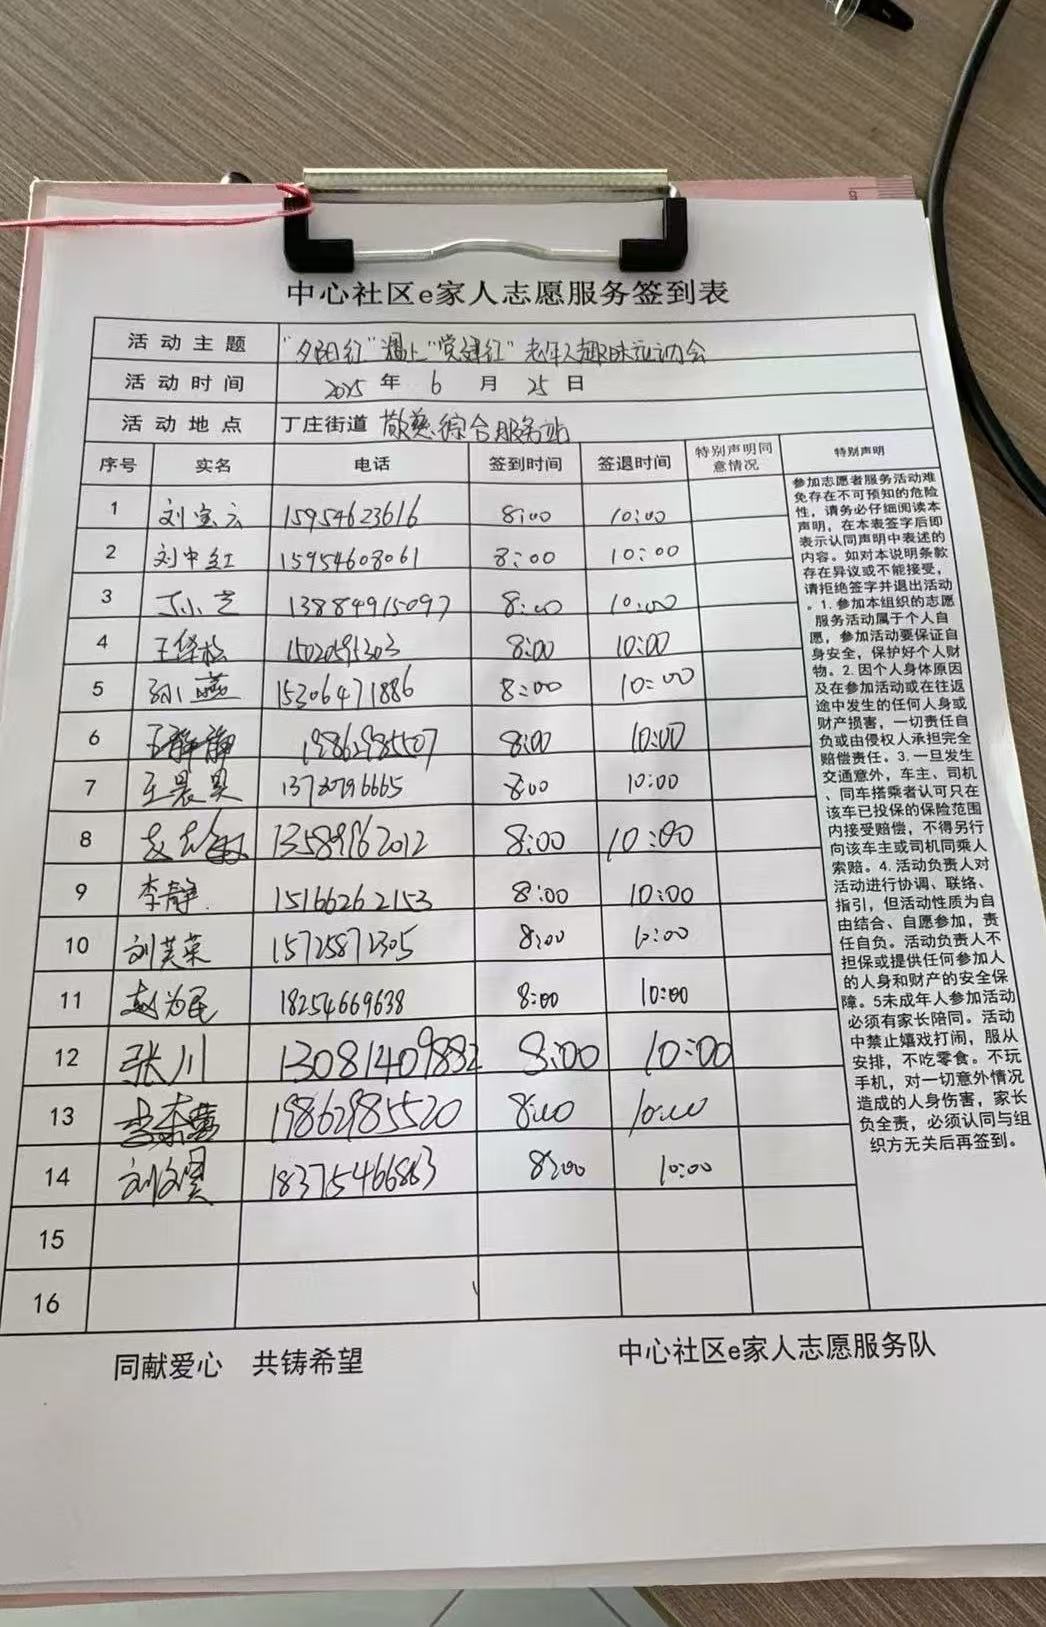 中心社区e家人志愿服务签到表
活动主题 "夕阳红"遇上"党建红" 老年人趣味运动会
活动时间 2025年 6 月 25日
活动地点 丁庄街道 敬慈综合服务站
序号 实名 电话 签到时间 签退时间 特别声明同意情况 特别声明
1 刘宝云 15954623616 8:00 10:00
2 刘中红 15954608061 8:00 10:00
3 丁小芝 13884915097 8:00 10:00
4 8:00 10:00
5 孙燕 15306471886 8:00 10:00
6 王静静 19862985507 8:00 10:00
7 王晨昊 8:00 10:00
8 13589962012 8:00 10:00
9 李静 15166262153 8:00 10:00
10 刘芙荣 15725871305 8:00 10:00
11 赵为民 18254669638 8:00 10:00
12 张川 13081409882 8:00 10:00
13 19862985520 8:00 10:00
14 18375466863 8:00 10:00
15
16
参加志愿者服务活动难
免存在不可预知的危险
性,请务必仔细阅读本
声明,在本表签字后即
表示认同声明中表述的
内容。如对本说明条款
存在异议或不能接受,
请拒绝签字并退出活动
。1.参加本组织的志愿
服务活动属于个人自
愿,参加活动要保证自
身安全,保护好个人财
物。2.因个人身体原因
及在参加活动或在往返
途中发生的任何人身或
财产损害,一切责任自
负或由侵权人承担完全
赔偿责任。3.一旦发生
交通意外,车主、司机
、同车搭乘者认可只在
该车已投保的保险范围
内接受赔偿,不得另行
向该车主或司机同乘人
索赔。4.活动负责人对
活动进行协调、联络、
指引,但活动性质为自
由结合、自愿参加,责
任自负。活动负责人不
担保或提供任何参加人
的人身和财产的安全保
障。5未成年人参加活动
必须有家长陪同。活动
中禁止嬉戏打闹,服从
安排,不吃零食。不玩
手机,对一切意外情况
造成的人身伤害,家长
负全责,必须认同与组
织方无关后再签到。
同献爱心 共铸希望 中心社区e家人志愿服务队